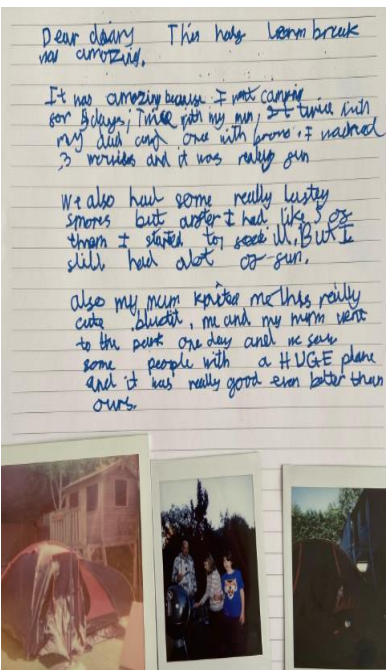 Dear daiary This half term break
was amazing.
It was amazing because I went camping
for 5 days, Twice with my mum, twice with
my dad and one with bromo. I watched
3 movies and it was really fun
we also had some really tastey
smores but after I had like 5 of
them I started to feel ill, But I
still had alot of fun.
also my mum knited me this really
cute , me and my mum went
to the park one day and we saw
some people with a HUGE plane
and it was really good even better than
ours.